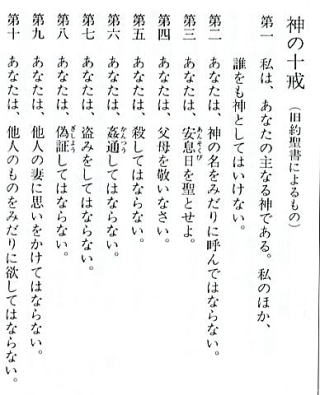 神の十戒 (旧約聖書によるもの)
第一 私は、あなたの主なる神である。私のほか、
誰をも神としてはいけない。
第二 あなたは、神の名をみだりに呼んではならない。
第三 あなたは、安息日を聖とせよ。
第四 あなたは、父母を敬いなさい。
第五 あなたは、殺してはならない。
第六 あなたは、姦通してはならない。
第七 あなたは、盗みをしてはならない。
第八 あなたは、偽証してはならない。
第九 あなたは、他人の妻に思いをかけてはならない。
第十 あなたは、他人のものをみだりに欲してはならない。